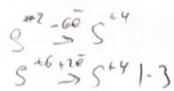 S⁻² -6ē → S⁺⁴
S⁺⁶ +2ē → S⁺⁴ | -3